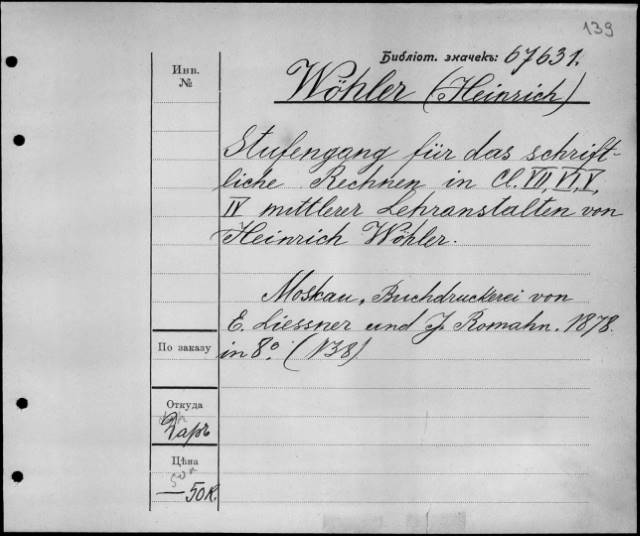 139
Библіот. значекъ: 67631.
Инв.
№
Wöhler (Heinrich)
Stufengang für das schrift-
liche Rechnen in Cl. VII, VI, V,
IV mittlerer Lehranstalten von
Heinrich Wöhler.
Moskau, Buchdruckerei von
E. Liessner und J. Romahn. 1878.
in 8° (138)
По заказу
Откуда
Даръ
Цѣна
50 к
— 50 к.